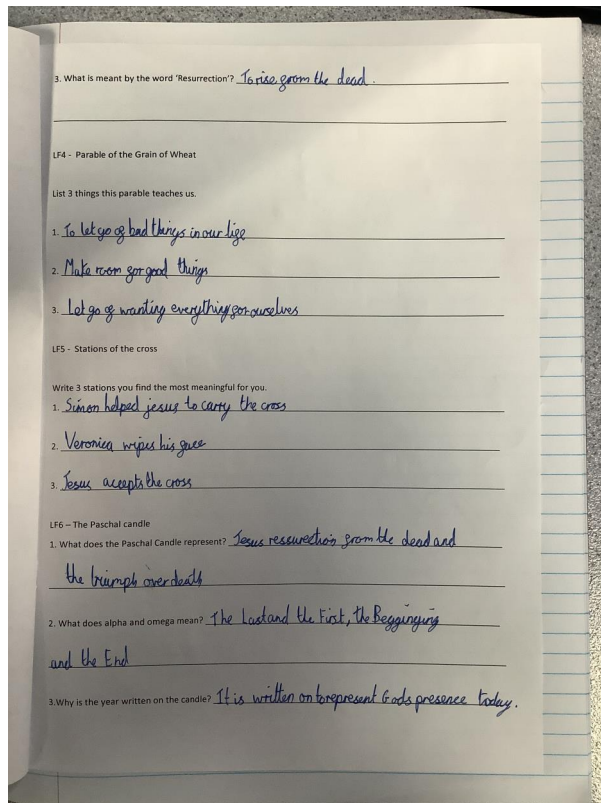 3. What is meant by the word 'Resurrection'? To rise from the dead.
LF4 - Parable of the Grain of Wheat
List 3 things this parable teaches us.
1. To let go of bad things in our life
2. Make room for good things
3. Let go of wanting everything for ourselves
LF5 - Stations of the cross
Write 3 stations you find the most meaningful for you.
1. Simon helped jesus to carry the cross
2. Veronica wipes his face
3. Jesus accepts the cross
LF6 – The Paschal candle
1. What does the Paschal Candle represent? Jesus ressurection's from the dead and
the triumph over death
2. What does alpha and omega mean? The Last and the First, the Beggingying
and the End
3.Why is the year written on the candle? It is written on to represent Gods presence today.